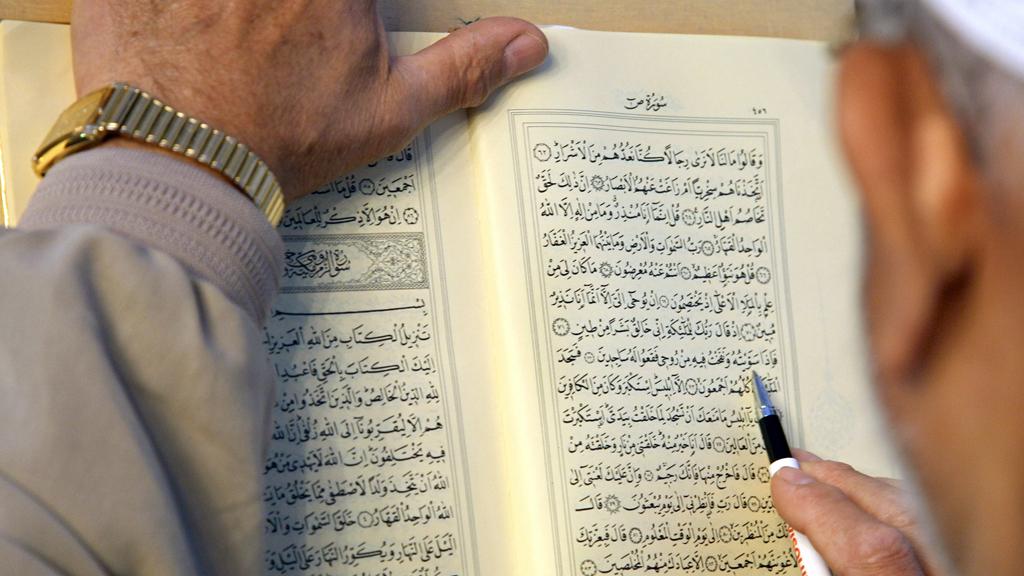 سورة ص
٤٥٦
وَقَالُوا مَا لَنَا لَا نَرٰى رِجَالًا كُنَّا نَعُدُّهُمْ مِنَ الْاَشْرَارِ
اَتَّخَذْنَاهُمْ سِخْرِيًّا اَمْ زَاغَتْ عَنْهُمُ الْاَبْصَارُ اِنَّ ذٰلِكَ لَحَقٌّ
تَخَاصُمُ اَهْلِ النَّارِ قُلْ اِنَّمَا اَنَا مُنْذِرٌ وَمَا مِنْ اِلٰهٍ اِلَّا اللّٰهُ
الْوَاحِدُ الْقَهَّارُ رَبُّ السَّمٰوَاتِ وَالْاَرْضِ وَمَا بَيْنَهُمَا الْعَزِيزُ الْغَفَّارُ
قُلْ هُوَ نَبَؤٌا عَظِيمٌ اَنْتُمْ عَنْهُ مُعْرِضُونَ مَا كَانَ لِيَ مِنْ
عِلْمٍ بِالْمَلَاِ الْاَعْلٰى اِذْ يَخْتَصِمُونَ اِنْ يُوحٰى اِلَيَّ اِلَّا اَنَّمَا اَنَا نَذِيرٌ
مُبِينٌ اِذْ قَالَ رَبُّكَ لِلْمَلٰئِكَةِ اِنِّي خَالِقٌ بَشَرًا مِنْ طِينٍ
فَاِذَا سَوَّيْتُهُ وَنَفَخْتُ فِيهِ مِنْ رُوحِي فَقَعُوا لَهُ سَاجِدِينَ فَسَجَدَ
كُلُّهُمْ اَجْمَعُونَ اِلَّا اِبْلِيسَ اِسْتَكْبَرَ وَكَانَ مِنَ الْكَافِرِينَ
اِبْلِيسُ مَا مَنَعَكَ اَنْ تَسْجُدَ لِمَا خَلَقْتُ بِيَدَيَّ اَسْتَكْبَرْتَ
مِنَ الْعَالِينَ قَالَ اَنَا خَيْرٌ مِنْهُ خَلَقْتَنِي مِنْ نَارٍ وَخَلَقْتَهُ مِنْ
قَالَ فَاخْرُجْ مِنْهَا فَاِنَّكَ رَجِيمٌ وَاِنَّ عَلَيْكَ لَعْنَتِي اِلٰى
قَالَ رَبِّ فَاَنْظِرْنِي اِلٰى يَوْمِ يُبْعَثُونَ قَالَ
مِنَ الْمُنْظَرِينَ اِلٰى يَوْمِ الْوَقْتِ الْمَعْلُومِ قَالَ فَبِعِزَّتِكَ
اَجْمَعِينَ اِلَّا عِبَادَكَ مِنْهُمُ الْمُخْلَصِينَ
قَالَ
اَجْمَعِينَ قُلْ مَا
اِنْ هُوَ اِلَّا ذِكْرٌ لِلْعَالَمِينَ
سورة الزمر مكية
تَنْزِيلُ الْكِتَابِ مِنَ اللّٰهِ الْعَزِيزِ
اِلَيْكَ الْكِتَابَ بِالْحَقِّ فَاعْبُدِ
لِلّٰهِ الدِّينُ الْخَالِصُ وَالَّذِينَ اتَّخَذُوا مِنْ
هُمْ اِلَّا لِيُقَرِّبُونَا اِلَى اللّٰهِ
فِيهِ يَخْتَلِفُونَ اِنَّ اللّٰهَ لَا يَهْدِي مَنْ هُوَ
اللّٰهُ اَنْ يَتَّخِذَ وَلَدًا لَاصْطَفٰى مِمَّا يَخْلُقُ مَا
اللّٰهُ الْوَاحِدُ الْقَهَّارُ خَلَقَ السَّمٰوَاتِ
الَّيْلَ عَلَى النَّهَارِ وَيُكَوِّرُ النَّهَارَ عَلَى الَّيْلِ